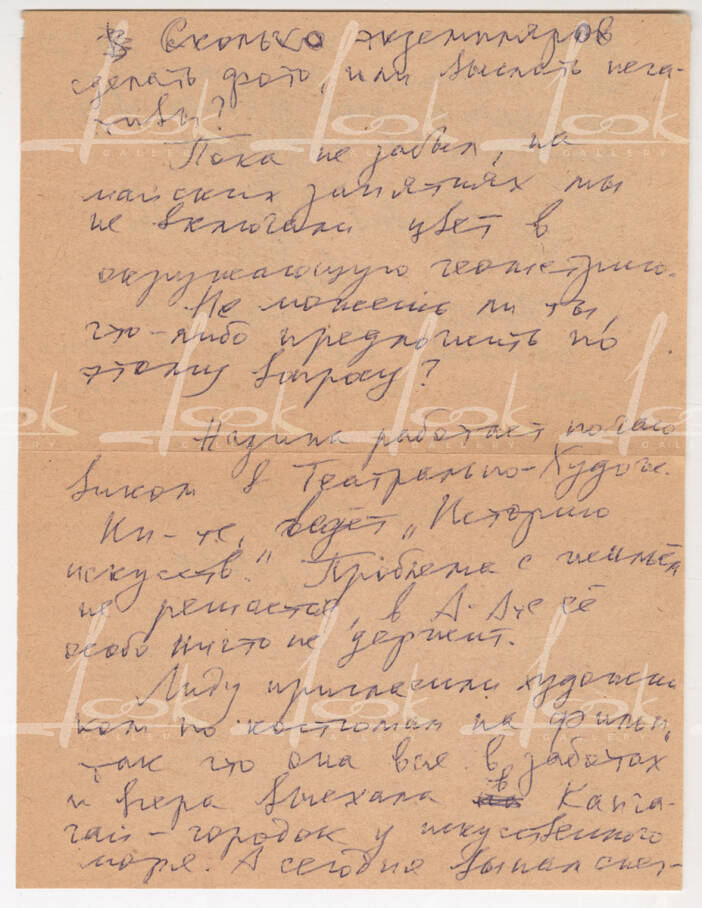 Сколько экземпляров
сделать фото, или выслать нега-
тивы?
Пока не забыл, на
майских занятиях мы
не включали цвет в
окружающую геометрию.
Не можешь ли ты,
что-либо предложить по
этому вопросу?
Назипа работает почасо
виком в Театрально-Худож.
Ин-те, ведёт „Историю
искусств." Проблема с жильём
не решается, в А-Ате её
особо ничто не держит.
Лиду пригласили художни
ком по костюмам на фильм,
так что она вся в заботах
и вчера выехала в Капча-
гай - городок у искуственного
моря. А сегодня выпал снег-
look
GALLERY